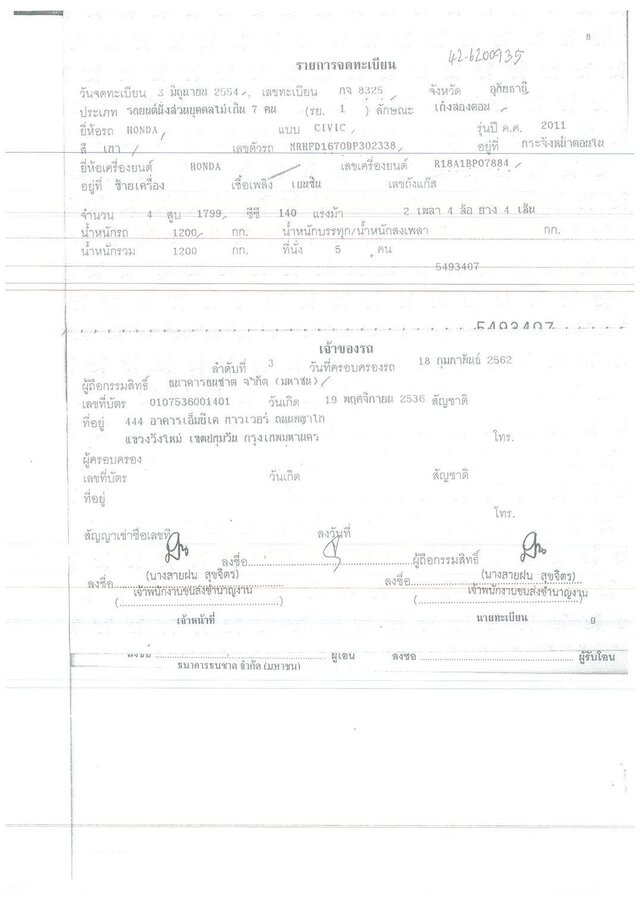 8
42-6200935
รายการจดทะเบียน
วันจดทะเบียน 3 มิถุนายน 2554 เลขทะเบียน กจ 8325 จังหวัด อุทัยธานี
ประเภท รถยนต์นั่งส่วนบุคคลไม่เกิน 7 คน (รย. 1 ) ลักษณะ เก๋งสองตอน
ยี่ห้อรถ HONDA แบบ CIVIC รุ่นปี ค.ศ. 2011
สี เทา เลขตัวรถ MRHFD1670BP302338 อยู่ที่ กระจังหน้าตอนใน
ยี่ห้อเครื่องยนต์ HONDA เลขเครื่องยนต์ R18A1BP07884
อยู่ที่ ซ้ายเครื่อง เชื้อเพลิง เบนซิน เลขถังแก๊ส
จำนวน 4 สูบ 1799 ซีซี 140 แรงม้า 2 เพลา 4 ล้อ ยาง 4 เส้น
น้ำหนักรถ 1200 กก. น้ำหนักบรรทุก/น้ำหนักลงเพลา กก.
น้ำหนักรวม 1200 กก. ที่นั่ง 5 คน
5493407
5493407
เจ้าของรถ
ลำดับที่ 3 วันที่ครอบครองรถ 18 กุมภาพันธ์ 2562
ผู้ถือกรรมสิทธิ์ ธนาคารธนชาต จำกัด (มหาชน)
เลขที่บัตร 0107536001401 วันเกิด 19 พฤศจิกายน 2536 สัญชาติ
ที่อยู่ 444 อาคารเอ็มบีเค ทาวเวอร์ ถนนพญาไท
แขวงวังใหม่ เขตปทุมวัน กรุงเทพมหานคร โทร.
ผู้ครอบครอง
เลขที่บัตร วันเกิด สัญชาติ
ที่อยู่
โทร.
สัญญาเช่าซื้อเลขที่ ลงวันที่
ลงชื่อ ผู้ถือกรรมสิทธิ์
(นางสายฝน สุขจิตร) (นางสายฝน สุขจิตร)
ลงชื่อ ลงชื่อ
เจ้าพนักงานขนส่งชำนาญงาน เจ้าพนักงานขนส่งชำนาญงาน
เจ้าหน้าที่ นายทะเบียน
ลงชื่อ ผู้โอน ลงชื่อ ผู้รับโอน
ธนาคารธนชาต จำกัด (มหาชน)